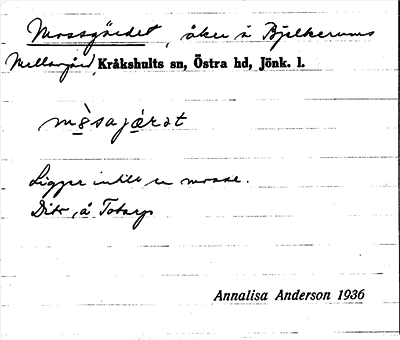 Mossgärdet, åker å Bjelkerums
Mellangård, Kråkshults sn, Östra hd, Jönk. l.
Ligger intill en mosse.
Dito, å Totarp
Annalisa Anderson 1936